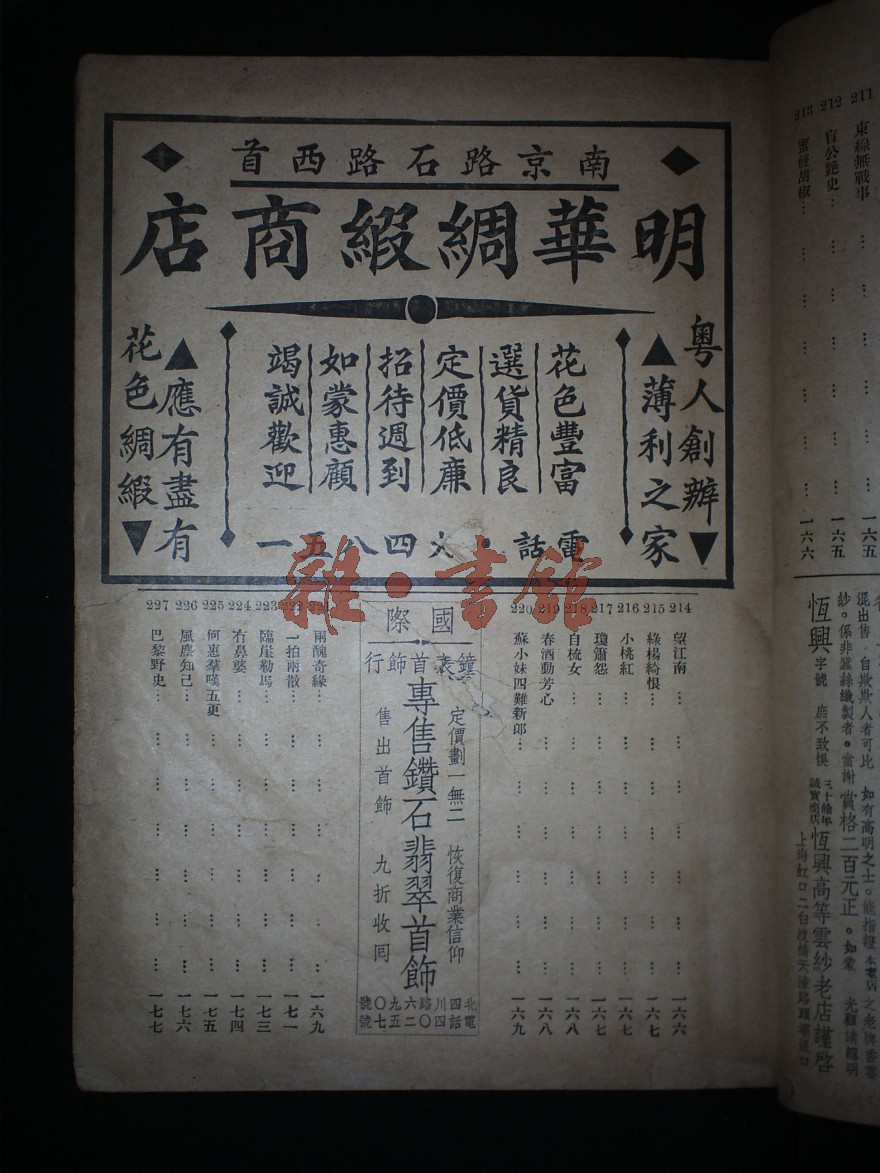 南京路石路西首
明華綢緞商店
粤人創辦
薄利之家
花色豐富
選貨精良
定價低廉
招待週到
如蒙惠顧
竭誠歡迎
應有盡有
花色綢緞
電話·九四八五一
雜·書館
214 望江南 一六六
215 綠楊綺恨 一六七
216 小桃紅 一六七
217 瓊簫怨 一六七
218 自梳女 一六八
219 春酒動芳心 一六八
220 蘇小妹四難新郎 一六九
國際
鐘表首飾行
定價劃一無二 恢復商業信仰
專售鑽石翡翠首飾
售出首飾 九折收囘
北四川路六九〇號
電話四〇二五七號
兩醜奇緣 一六九
一拍兩散 一七一
223 臨崖勒馬 一七三
224 冇鼻婆 一七四
225 何惠羣嘆五更 一七五
226 風塵知己 一七六
227 巴黎野史 一七七
211 東線無戰事
212 盲公艷史 一六五
213 蜜餞胡椒 一六六
混出售·自欺欺人者可比 如有高明之士·能指證本
紗·係非蠶絲織製者·當謝賞格二百元正·如蒙 光顧請認明
恆興字號 庶不致悞 三十餘年 誠實商店 恆興高等雲紗老店謹啓
上海虹口